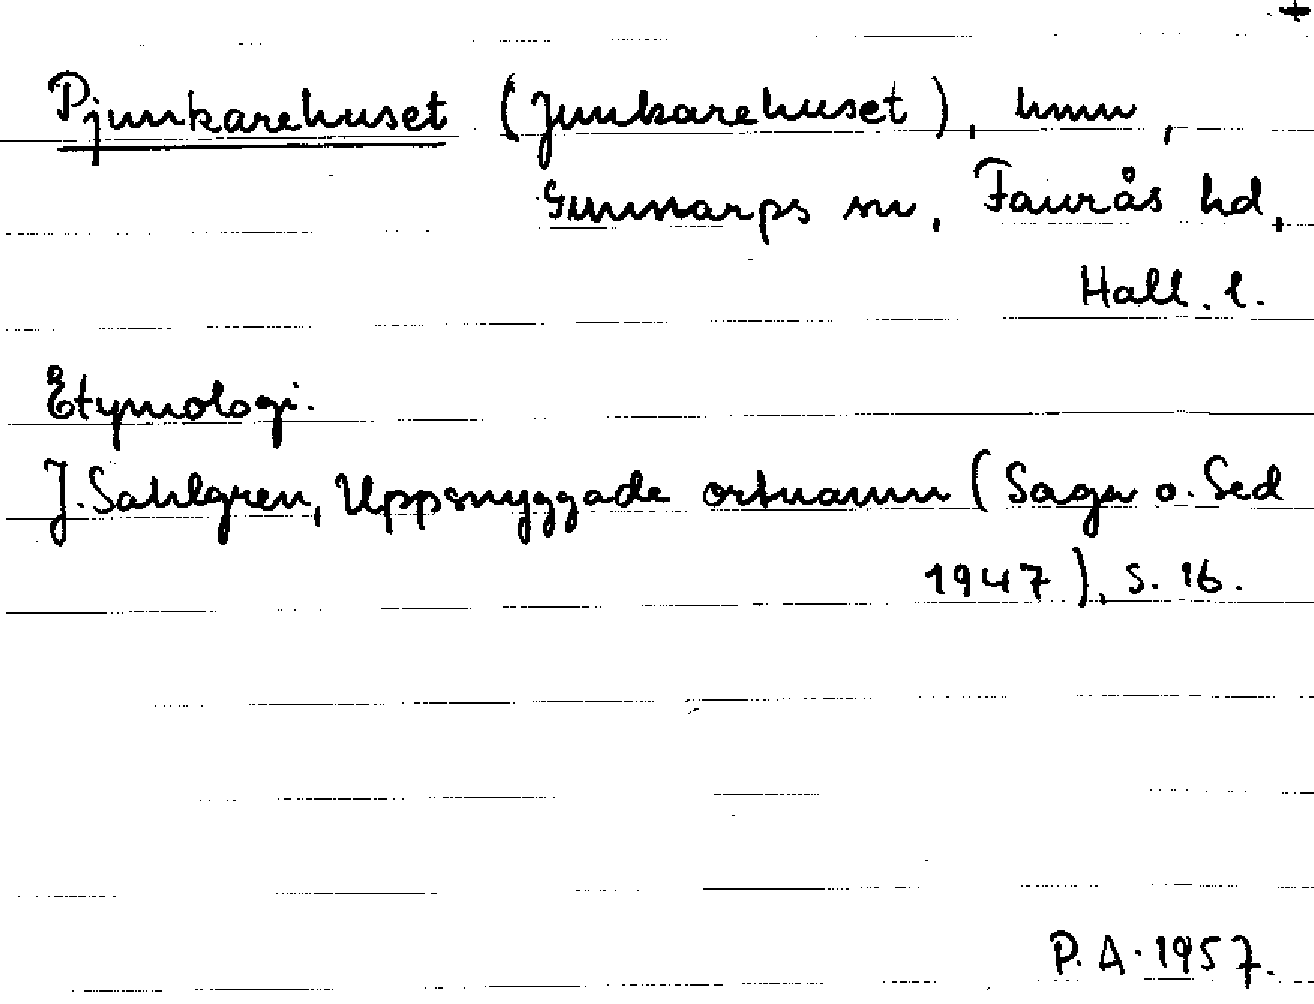 +
Pjunkarehuset (Junkarehuset), hmn,
Gunnarps sn, Faurås hd,
Hall. l.
Etymologi.
J. Sahlgren, Uppsnyggade ortnamn (Saga o. Sed
1947), s. 16.
P. A. 1957.